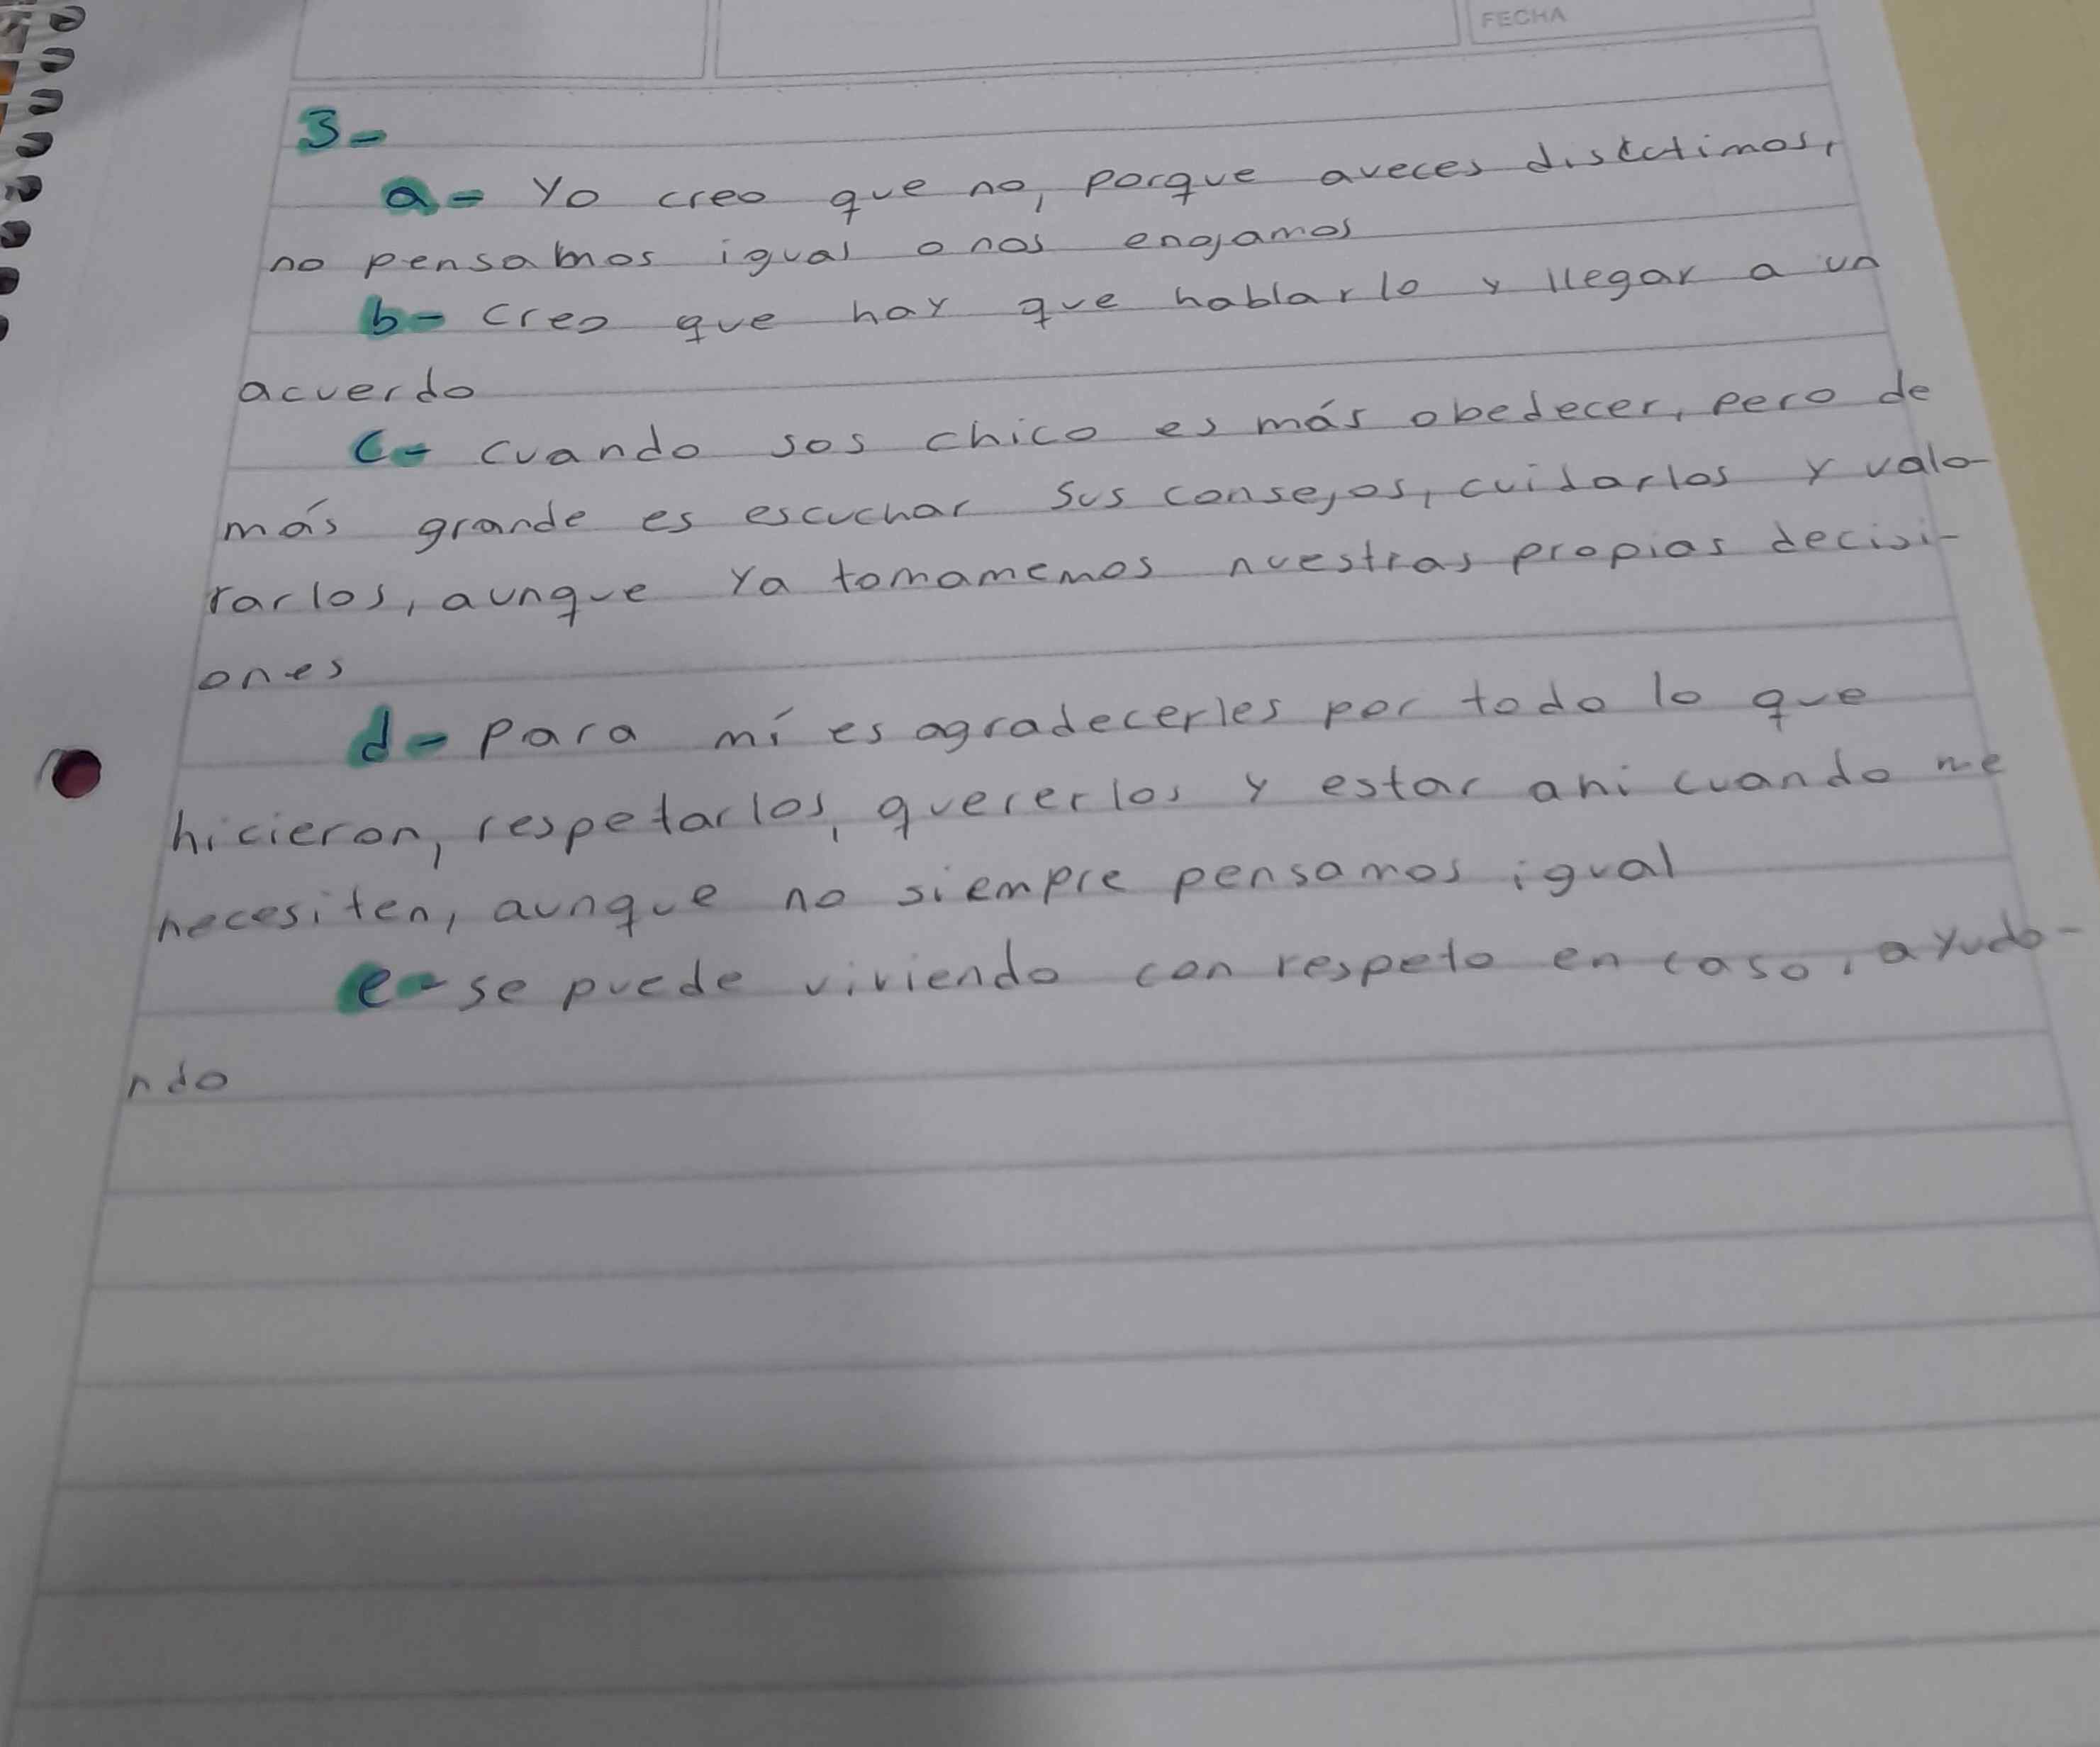 FECHA
3-
a- Yo creo que no, porque aveces discutimos,
no pensamos igual o nos enojamos
b- creo que hay que hablarlo y llegar a un
acuerdo
c- cuando sos chico es más obedecer, pero de
más grande es escuchar sus consejos, cuidarlos y valo-
rarlos, aunque ya tomamemos nuestras propias decisi-
ones
d- para mí es agradecerles por todo lo que
hicieron, respetarlos, quererlos y estar ahi cuando me
necesiten, aunque no siempre pensamos igual
e- se puede viviendo con respeto en casa, ayuda-
ndo